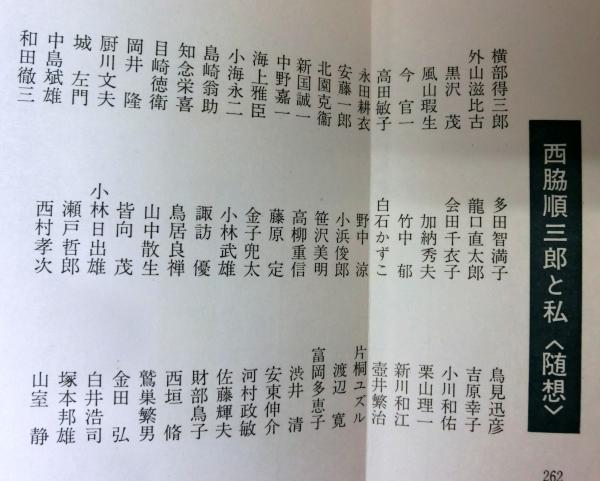 西脇順三郎と私〈随想〉
横部得三郎
外山滋比古
黒沢 茂
風山瑕生
今 官一
高田敏子
永田耕衣
安藤一郎
北園克衛
新国誠一
中野嘉一
海上雅臣
小海永二
島崎翁助
知念栄喜
目崎徳衛
岡井 隆
厨川文夫
城 左門
中島斌雄
和田徹三
多田智満子
龍口直太郎
会田千衣子
加納秀夫
竹中 郁
白石かずこ
野中 涼
小浜俊郎
笹沢美明
高柳重信
藤原 定
金子兜太
小林武雄
諏訪 優
鳥居良禅
山中散生
皆向 茂
小林日出雄
瀬戸哲郎
西村孝次
鳥見迅彦
吉原幸子
小川和佑
栗山理一
新川和江
壺井繁治
片桐ユズル
渡辺 寛
富岡多恵子
渋井 清
安東伸介
河村政敏
佐藤輝夫
財部鳥子
西垣 脩
鷲巣繁男
金田 弘
白井浩司
塚本邦雄
山室 静
262